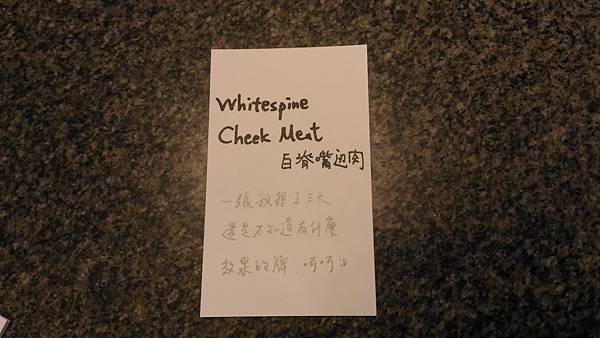 Whitespine
Cheek Meat
白脊嘴边肉
一張我摸了三天
還是不知道有什麼
效果的牌 呵呵